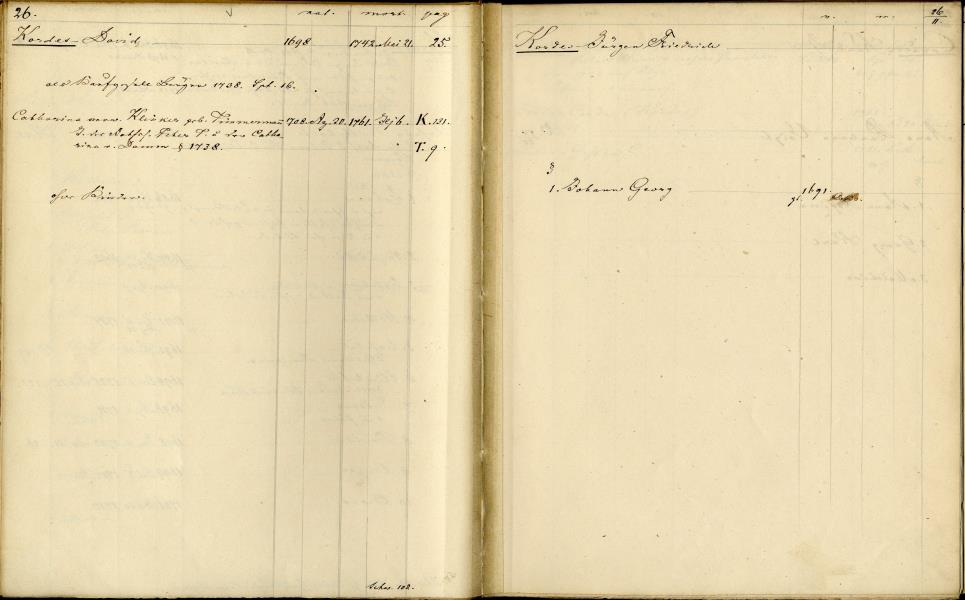 26. nat. mort. pag
Kordes David 1698 1742 Mai 21. 25.
als Kaufgeselle Bürger 1738. Spt. 16.
Catharina verw. geb. Timmermann 1708. Ag. 20. 1761. K. 131.
T. des Rathsh. Peter T. u. der Catha-
rina v. Damm § 1738. T. 9.
ohne Kinder.
Schw. 108.
n. m. 26
II.
Kordes Jürgen Friedrich
1. Johann Georg 1691.
gl.